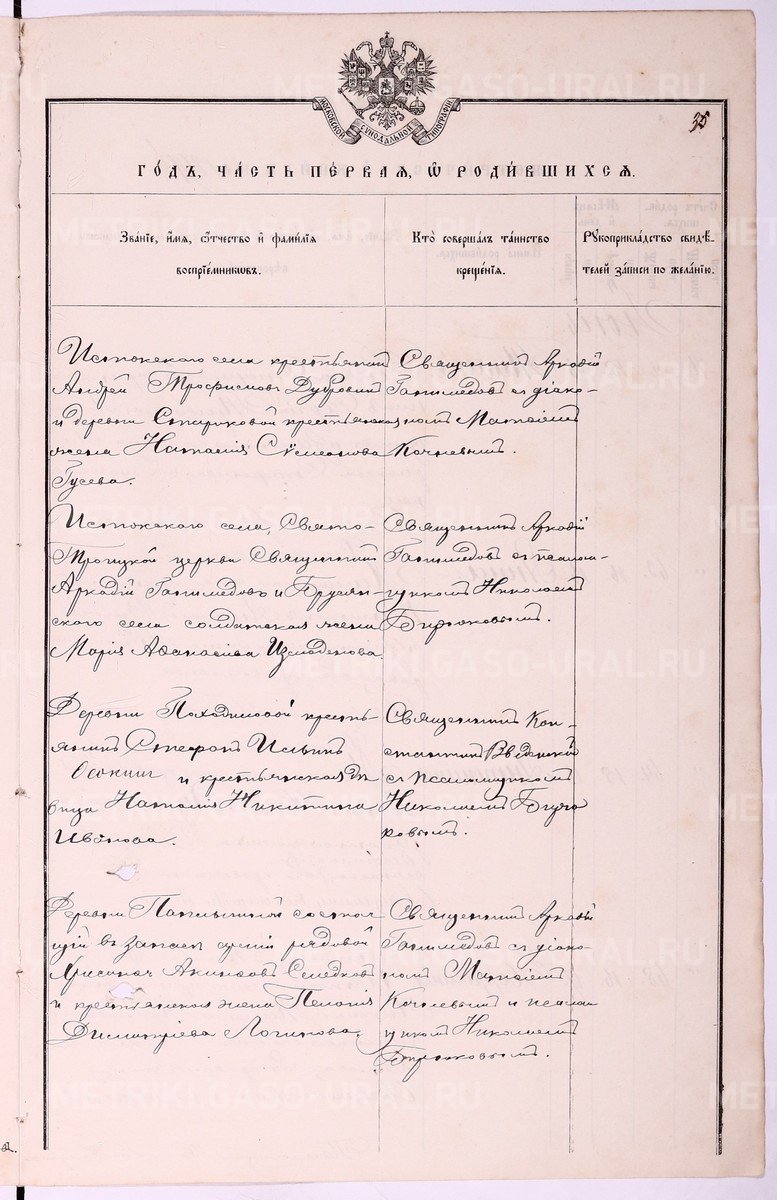 35
МОСКОВСКОЙ СѴНОДАЛЬНОЙ ТИПОГРАФІИ
ГО́ДЪ, ЧА́СТЬ ПЕ́РВАЯ, Ѡ҆ РОДИ́ВШИХСЯ.
Зва́нїе, и҆́мя, ѻ҆́тчество и҆ фами́лїя
воспрїе́мникѡвъ.
Кто̀ соверша́лъ та́инство
креще́нїя.
Рꙋкоприкла́дство свидѣ́-
телей за́писи по жела́нїю.
Истокскаго села крестьянин
Андрей Трофимов Дубровин
и деревни Стариковой крестьянская
жена Наталия Симеонова
Гусева.
Священник Аркадий
Ганимедов с диако-
ном Матвием
Кочневым.
Истокскаго села, Свято-
Троицкой церкви Священник
Аркадий Ганимедов и Брусян-
скаго села солдатская жена
Мария Афанасиева Измоденова
Священник Аркадий
Ганимедов с псалом-
щиком Николаем
Бирюковым.
Деревни Походиловой кресть-
янин Стефан Ильин
Осокин и крестьянская де
вица Наталия Никитина
Иванова.
Священник Кон-
стантин Введенский
с псаломщиком
Николаем Бирю
ковым.
Деревни состоя
щий в запасе армии рядовой
Хрисанф Селедков
и крестьянская жена Пелагия
Димитриева Логинова.
Священник Аркадий
Ганимедов с диако-
ном Матвием
Кочневым и псалом
щиком Николаем
Бирюковым.
METRIKI.GASO-URAL.RU